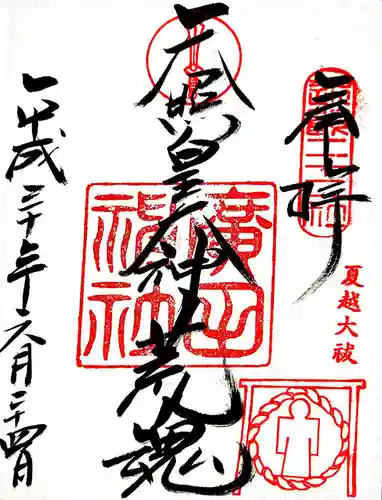 奉拝
夏越大祓
天照皇大神荒魂
廣田神社
平成三十年六月二十四日